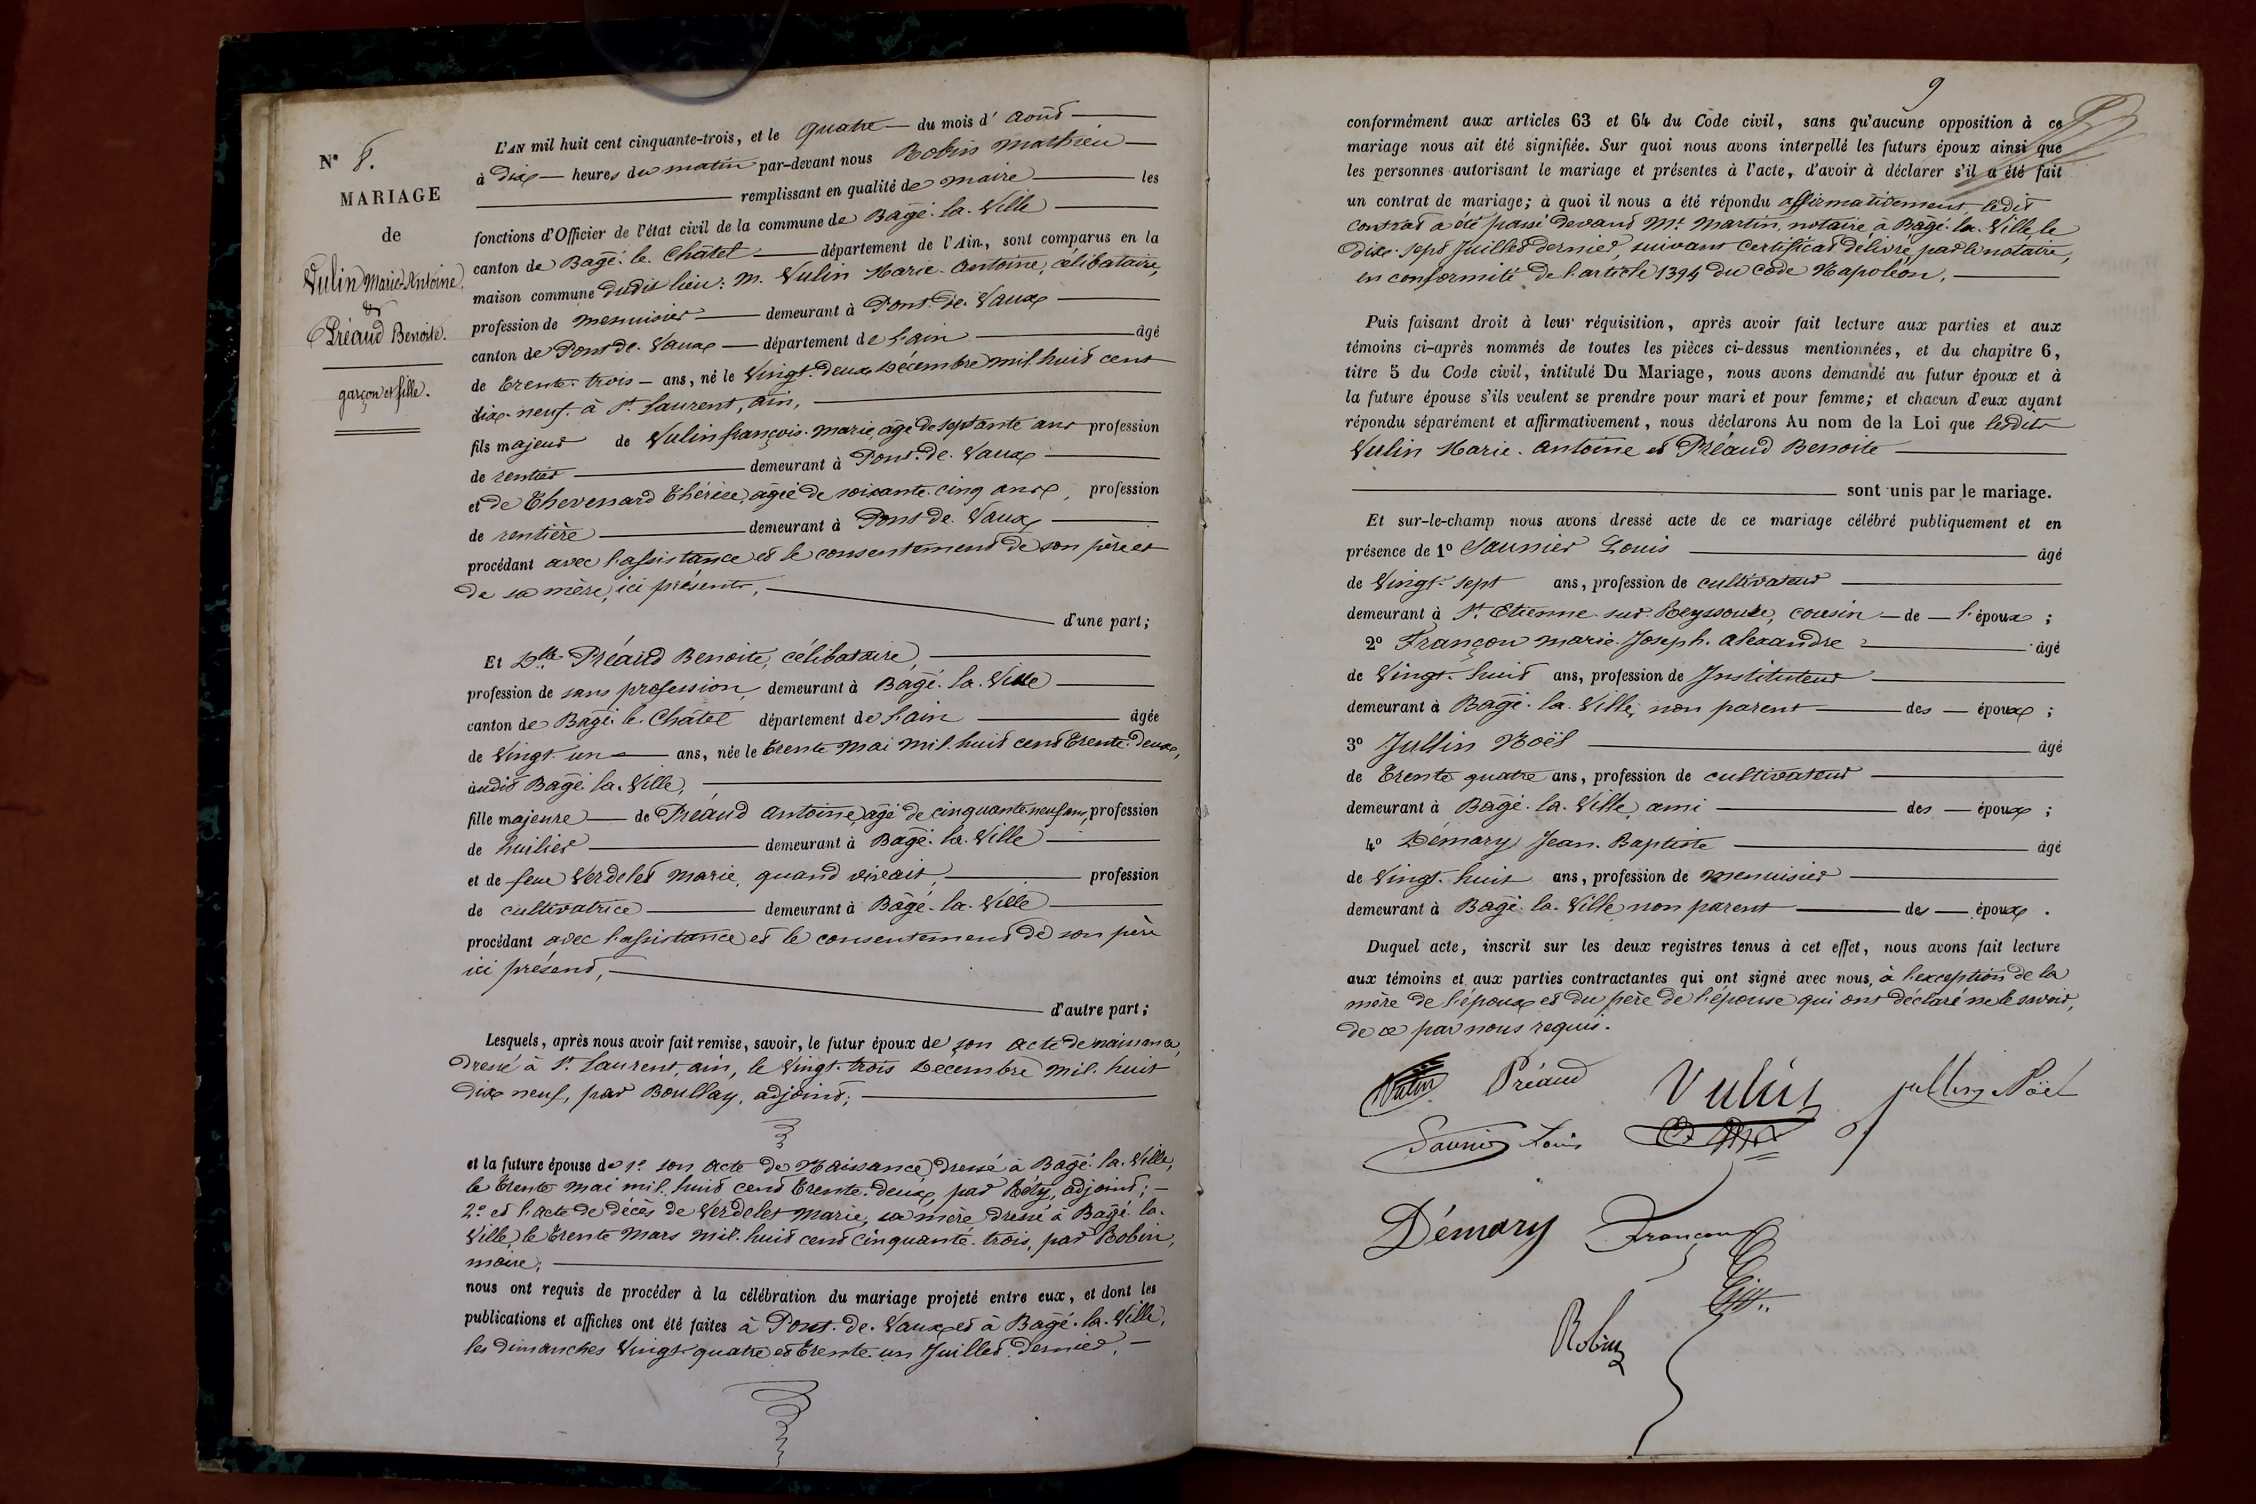 N° 8.
MARIAGE
de
Vulin Marie-Antoine
&
Préaud Benoite.
garçon et fille.
L'AN mil huit cent cinquante-trois, et le quatre du mois d'août
à dix heures du matin par-devant nous Robin Mathieu
remplissant en qualité de maire les
fonctions d'Officier de l'état civil de la commune de Bagé-la-Ville
canton de Bagé-le-Châtel département de l'Ain, sont comparus en la
maison commune dudit lieu: M. Vulin Marie-Antoine, célibataire,
profession de menuisier demeurant à Pont-de-Vaux
canton de Pont-de-Vaux département de l'ain âgé
de trente-trois ans, né le Vingt-deux Décembre mil huit cent
dix-neuf à St Laurent, ain,
fils majeur de Vulin françois-marie, âgé de septante ans profession
de rentier demeurant à Pont-de-Vaux
et de Thevenard Thérèse, âgée de soixante-cinq ans, profession
de rentière demeurant à Pont-de-Vaux
procédant avec l'assistance et le consentement de son père et
de sa mère, ici présents,
d'une part;
Et Dlle Préaud Benoite, célibataire,
profession de sans profession demeurant à Bagé-la-Ville
canton de Bagé-le-Châtel département de l'ain âgée
de Vingt-un ans, née le trente Mai mil huit cent trente-deux,
audit Bagé-la-Ville,
fille majeure de Préaud Antoine, âgé de cinquante-neuf ans, profession
de huilier demeurant à Bagé-la-Ville
et de feue Verdelet Marie, quand vivait, profession
de cultivatrice demeurant à Bagé-la-Ville
procédant avec l'assistance et le consentement de son père
ici présent,
d'autre part;
Lesquels, après nous avoir fait remise, savoir, le futur époux de son acte de naissance,
dressé à St Laurent, ain, le Vingt-trois Décembre mil-huit
dix neuf, par Boullay, adjoint;
et la future épouse de 1° son acte de Naissance dressé à Bagé-la-Ville,
le trente mai mil-huit cent trente-deux, par Réty, adjoint;
2° et l'acte de décès de Verdelet Marie, sa mère dressé à Bagé-la-
Ville, le trente Mars mil-huit cent cinquante-trois, par Robin,
maire;
nous ont requis de procéder à la célébration du mariage projeté entre eux, et dont les
publications et affiches ont été faites à Pont-de-Vaux et à Bagé-la-Ville,
les dimanches Vingt-quatre et trente-un Juillet dernier,
9
conformément aux articles 63 et 64 du Code civil, sans qu'aucune opposition à ce
mariage nous ait été signifiée. Sur quoi nous avons interpellé les futurs époux ainsi que
les personnes autorisant le mariage et présentes à l'acte, d'avoir à déclarer s'il a été fait
un contrat de mariage; à quoi il nous a été répondu affirmativement ledit
contrat a été passé devant Me Martin, notaire à Bagé-la-Ville le
dix-sept Juillet dernier, suivant certificat délivré par le notaire,
en conformité de l'article 1394 du Code Napoléon,
Puis faisant droit à leur réquisition, après avoir fait lecture aux parties et aux
témoins ci-après nommés de toutes les pièces ci-dessus mentionnées, et du chapitre 6,
titre 5 du Code civil, intitulé Du Mariage, nous avons demandé au futur époux et à
la future épouse s'ils veulent se prendre pour mari et pour femme; et chacun d'eux ayant
répondu séparément et affirmativement, nous déclarons Au nom de la Loi que lesdits
Vulin Marie-Antoine et Préaud Benoite
sont unis par le mariage.
Et sur-le-champ nous avons dressé acte de ce mariage célébré publiquement et en
présence de 1° Saunier Louis âgé
de Vingt-sept ans, profession de cultivateur
demeurant à St Etienne-sur-Reyssouze, cousin de l'époux;
2° Françon marie-Joseph-Alexandre âgé
de Vingt-huit ans, profession de Instituteur
demeurant à Bagé-la-Ville, non parent des époux;
3° Jullin Noël âgé
de trente quatre ans, profession de cultivateur
demeurant à Bagé-la-Ville, ami des époux;
4° Démary Jean-Baptiste âgé
de Vingt-huit ans, profession de menuisier
demeurant à Bagé-la-Ville non parent des époux.
Duquel acte, inscrit sur les deux registres tenus à cet effet, nous avons fait lecture
aux témoins et aux parties contractantes qui ont signé avec nous, à l'exception de la
mère de l'époux et du père de l'épouse qui ont déclaré ne le savoir,
de ce par nous requis.
Vulin Préaud Vulin jullin Noël
Saunier Louis
Démary Françon
Robin